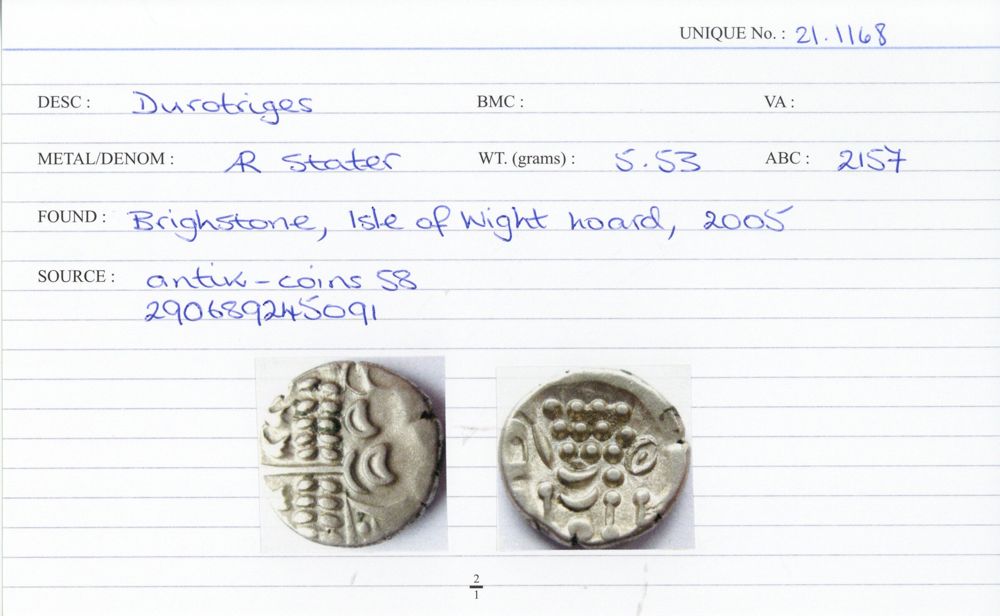 UNIQUE No. : 21.1168
DESC : Durotriges BMC : VA :
METAL/DENOM : AR Stater WT. (grams) : 5.53 ABC : 2157
FOUND : Brighstone, Isle of Wight hoard, 2005
SOURCE : antik-coins 58
290689245091
2
1